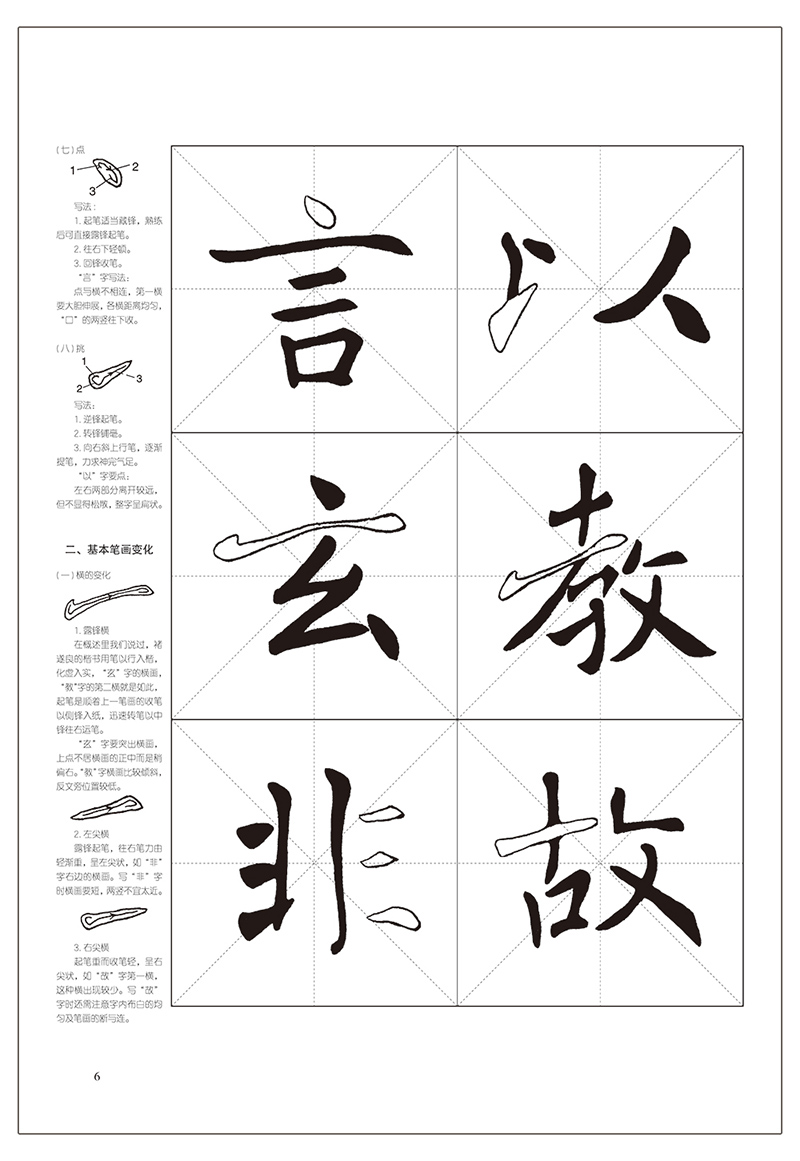 (七)点
1 2
3
写法：
1. 起笔适当藏锋，熟练
后可直接露锋起笔。
2. 往右下轻顿。
3. 回锋收笔。
“言”字写法：
点与横不相连，第一横
要大胆伸展，各横距离均匀，
“口”的两竖往下收。
(八)挑
1
2 3
写法：
1. 逆锋起笔。
2. 转锋铺毫。
3. 向右斜上行笔，逐渐
提笔，力求神完气足。
“以”字要点：
左右两部分离开较远，
但不显得松散，整字呈扁状。
二、基本笔画变化
(一)横的变化
1. 露锋横
在概述里我们说过，褚
遂良的楷书用笔以行入楷，
化虚入实，“玄”字的横画，
“教”字的第二横就是如此，
起笔是顺着上一笔画的收笔
以侧锋入纸，迅速转笔以中
锋往右运笔。
“玄”字要突出横画，
上点不居横画的正中而是稍
偏右。“教”字横画比较倾斜，
反文旁位置较低。
2. 左尖横
露锋起笔，往右笔力由
轻渐重，呈左尖状，如“非”
字右边的横画。写“非”字
时横画要短，两竖不宜太近。
3. 右尖横
起笔重而收笔轻，呈右
尖状，如“故”字第一横，
这种横出现较少。写“故”
字时还需注意字内布白的均
匀及笔画的断与连。
言以
玄教
非故
6